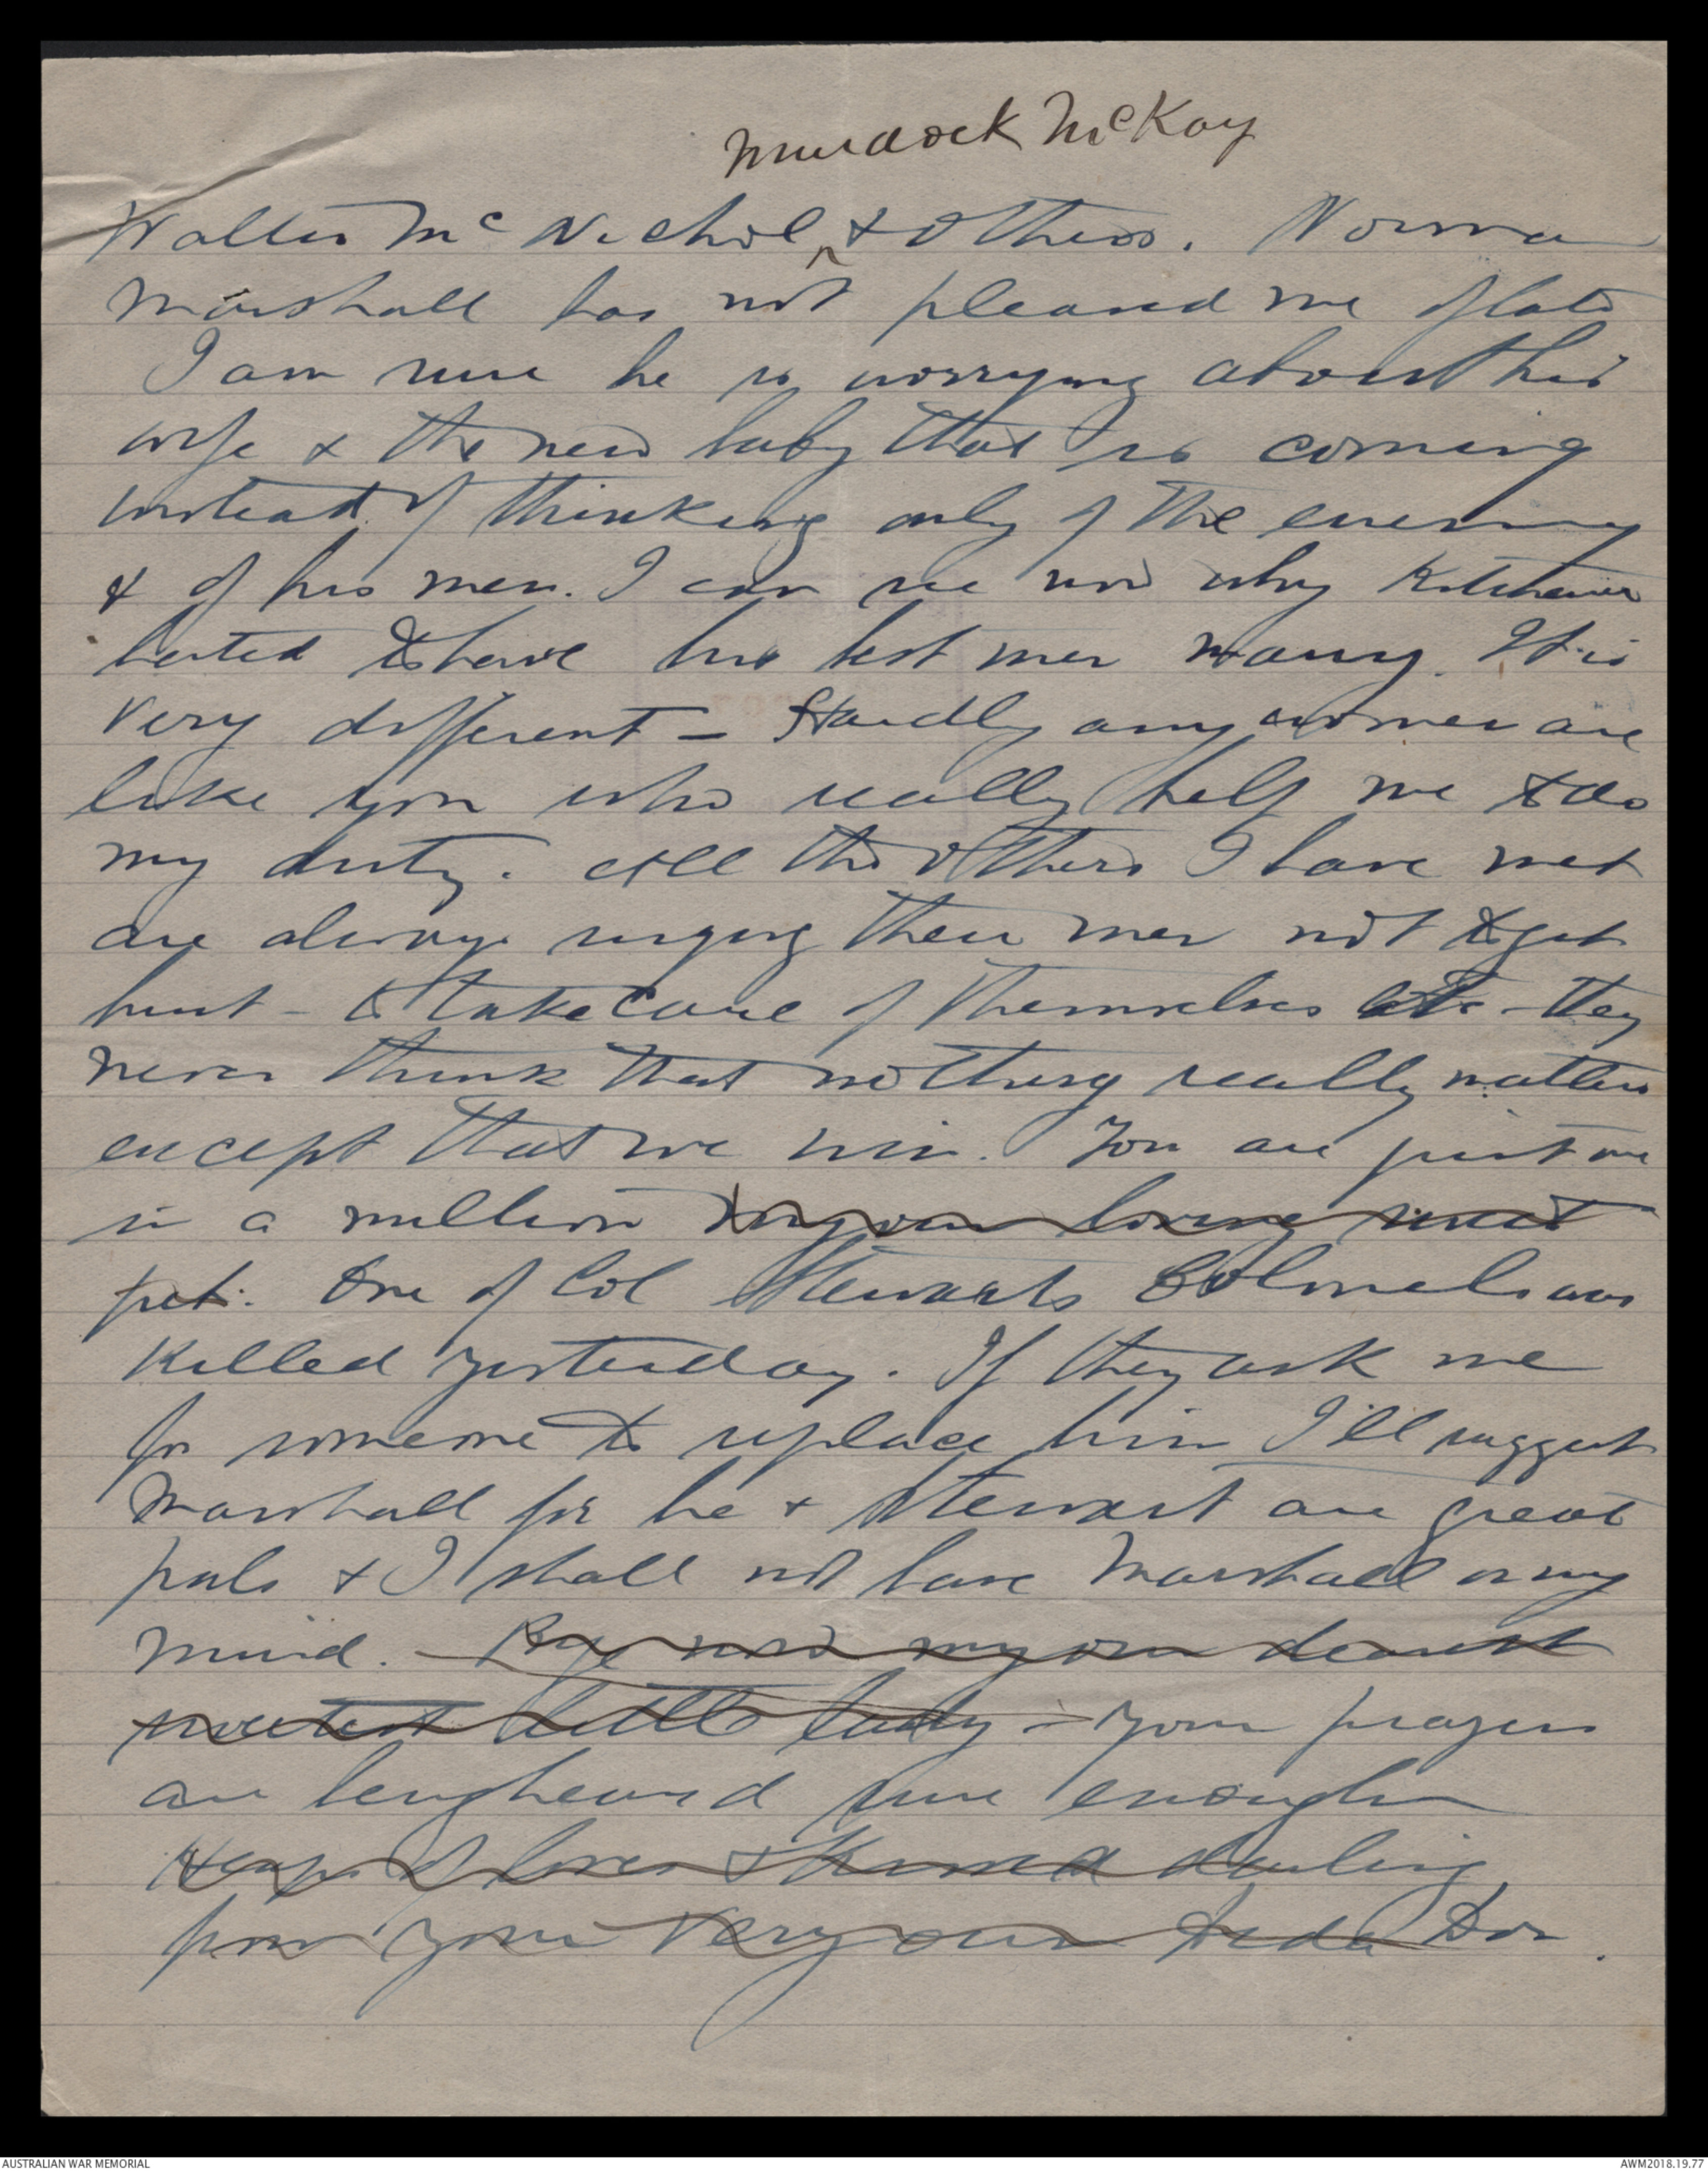 Murdock McKay
Walter McNichol ^ & others. Norman
Marshall has not pleased me of late
I am sure he is worrying about his
wife & the new baby that is coming
instead of thinking only of the enemy
& of his men. I can see now why Kitchener
hated to have his best men marry. It is
very different - Hardly any women are
like you who really help me to do
my duty. All the others I have met
are always urging their men not to get
hurt - to take care of themselves etc - they
never think that nothing really matters
except that we win. You are just one
in a million my own loving sweet
pet. One of Col Stewarts Colonels was
killed yesterday. If they ask me
for someone to replace him I'll suggest
Marshall for he & Stewart are great
pals & I shall not have Marshall on my
mind. - Bye now my own dearest
sweetest little lady - your prayers
are being heard sure enough
Heaps of love & kisses darling
from your very own Dor.
AUSTRALIAN WAR MEMORIAL
AWM2018.19.77